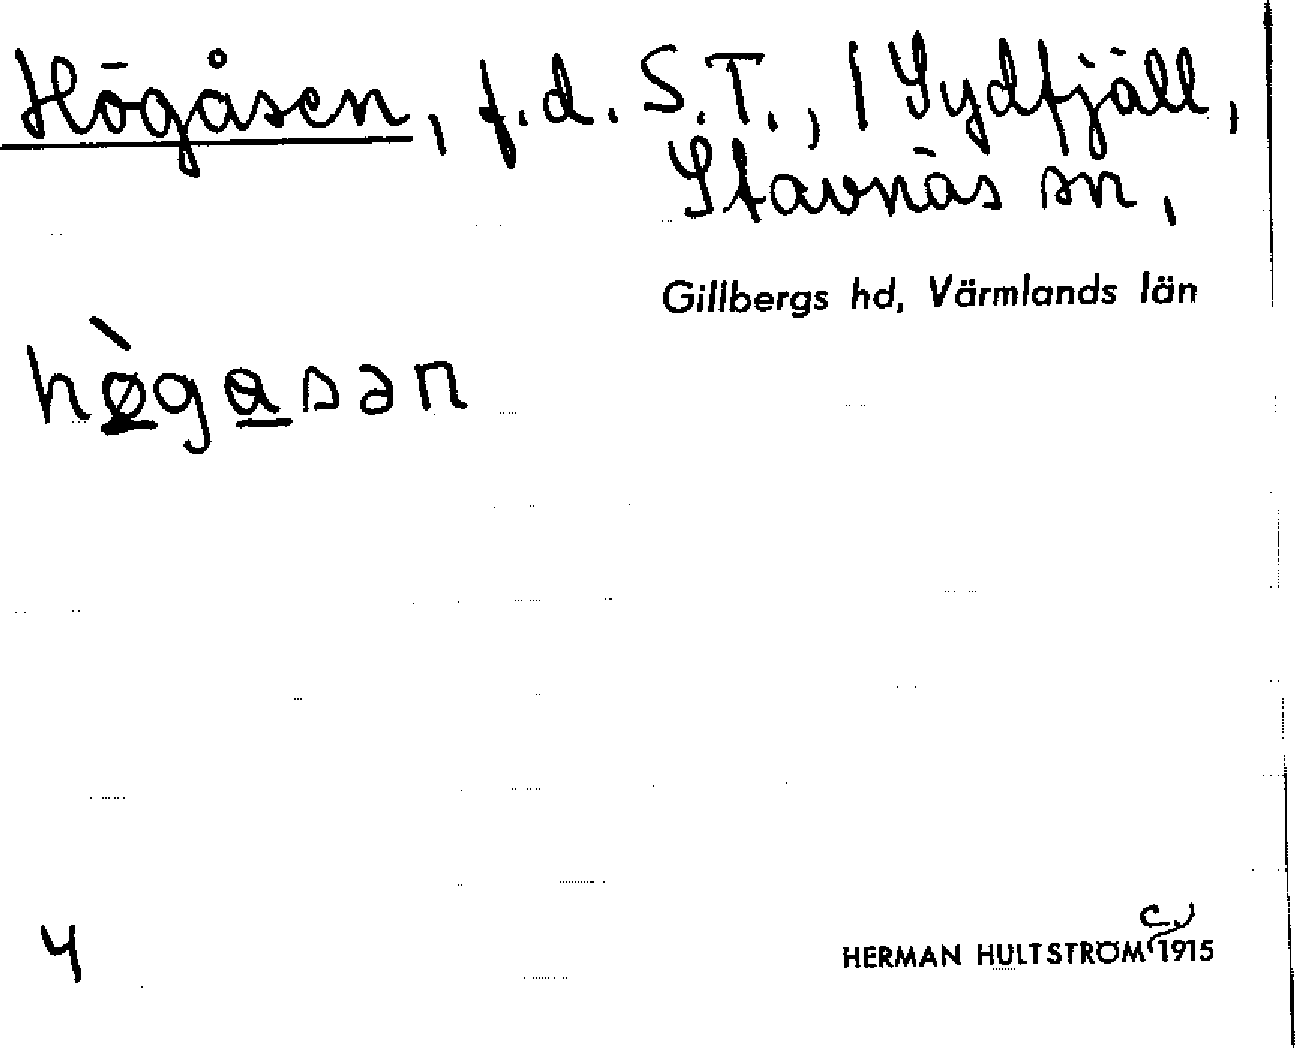 Högåsen, f.d. S.T., / Sydfjäll,
Stavnäs sn,
Gillbergs hd, Värmlands län
hø̀gasən
4
HERMAN HULTSTRÖM c. 1915